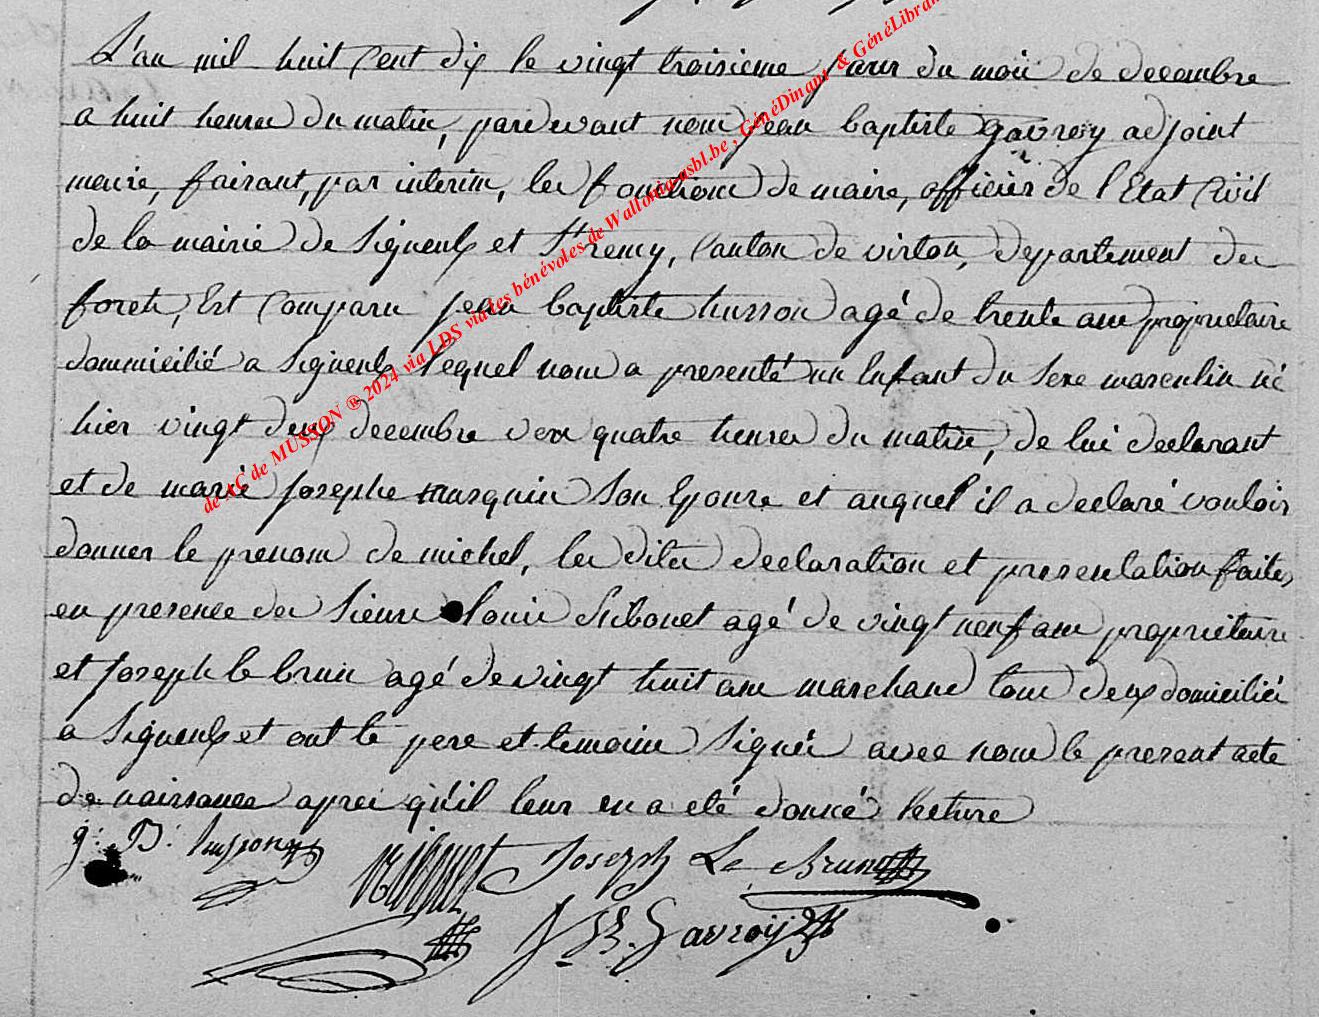 L'an mil huit Cent dix le vingt troisieme jour du mois de decembre
a huit heures du matin, pardevant nous jean baptiste gavroy adjoint
maire, faisant, par interim, les fonctions de maire, officier de l'Etat Civil
de la mairie de Signeulx et St remy, Canton de virton, departement des
forets, Est Comparu jean baptiste husson agé de trente ans proprietaire
dommicilié a Signeulx lequel nous a presenté un Enfant du Sexe masculin né
hier vingt deux decembre vers quatre heures du matin, de lui declarant
et de marie josephe masquin Son Epouse et auquel il a declaré vouloir
donner le prenom de michel, les dites declaration et presentation faites
en presence des Sieurs louis agé de vingt neuf ans proprietaire
et joseph le brun agé de vingt huit ans marchand tous deux domiciliés
a Signeulx et ont le pere et temoins Signés avec nous le present acte
de naissance apres qu'il leur en a eté donné lecture
g: B: husson
Joseph Le Brun
J B. Gavroÿ
de AC de MUSSON ® 2024 via LDS via les bénévoles de Wallonia-asbl.be , GénéDinant & GénéLibran